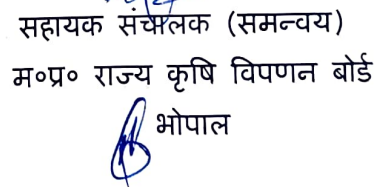 सहायक संचालक (समन्वय)
म०प्र० राज्य कृषि विपणन बोर्ड
भोपाल